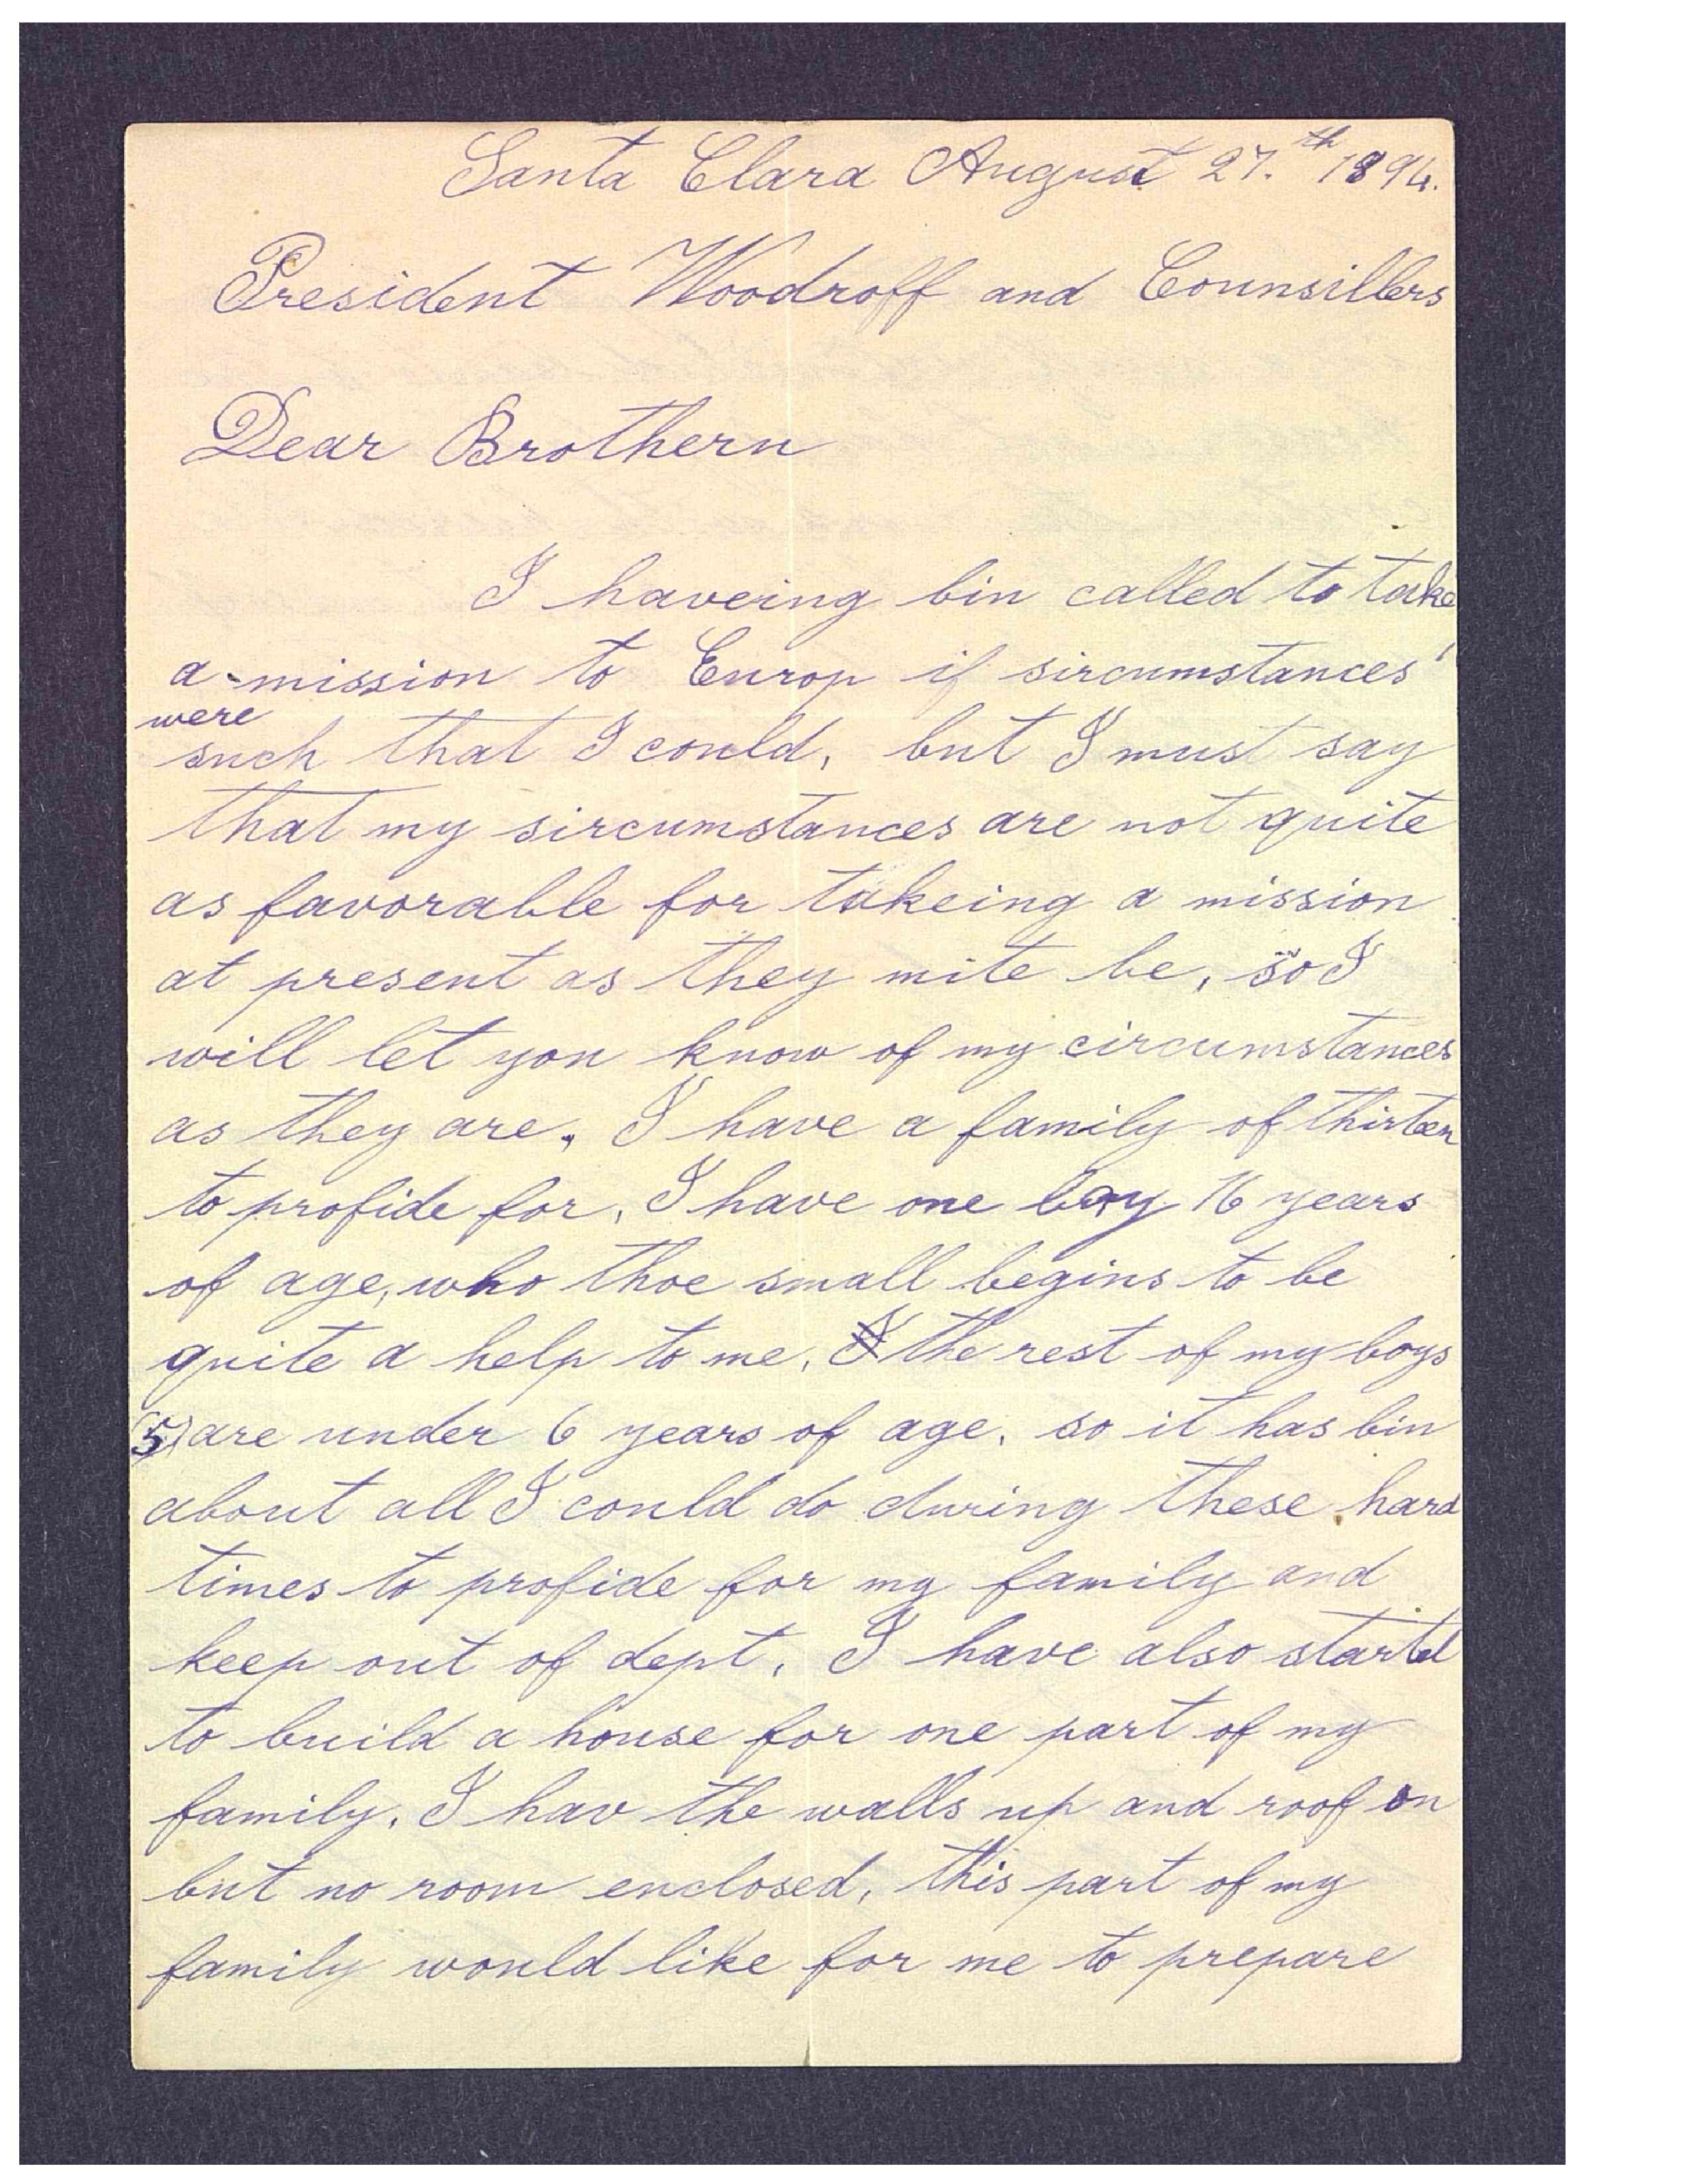 Santa Clara August 27.th 1894.
President Woodroff and Counsillers
Dear Brothern
I haveing bin called to take
a mission to Europ if sircumstances
were
such that I could, but I must say
that my sircumstances are not quite
as favorable for takeing a mission
at present as they mite be, so I
will let you know of my circumstances
as they are. I have a family of thirteen
to profide for, I have one boy 16 years
of age, who thoe small begins to be
quite a help to me, the rest of my boys
(5) are under 6 years of age, so it has bin
about all I could do during these hard
times to profide for my family and
keep out of dept, I have also started
to build a house for one part of my
family, I hav the walls up and roof on
but no room enclosed, this part of my
family would like for me to prepare